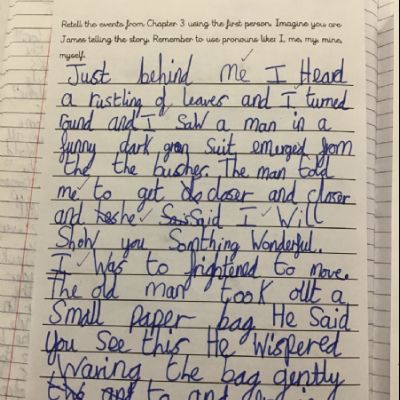 Retell the events from Chapter 3 using the first person. Imagine you are
James telling the story. Remember to use pronouns like: I, me, my, mine,
myself.
Just behind me I Heard
a rustling of leaves and I turned
round and I saw a man in a
funny dark gren suit emerged from
the the bushes. The man told
me to get closer and closer
and he said I Will
Show you Somthing Wonderful.
I Was to frightened to move.
The old man took out a
Small paper bag He Said
You See this He Wispered
Waving the bag gently
to and